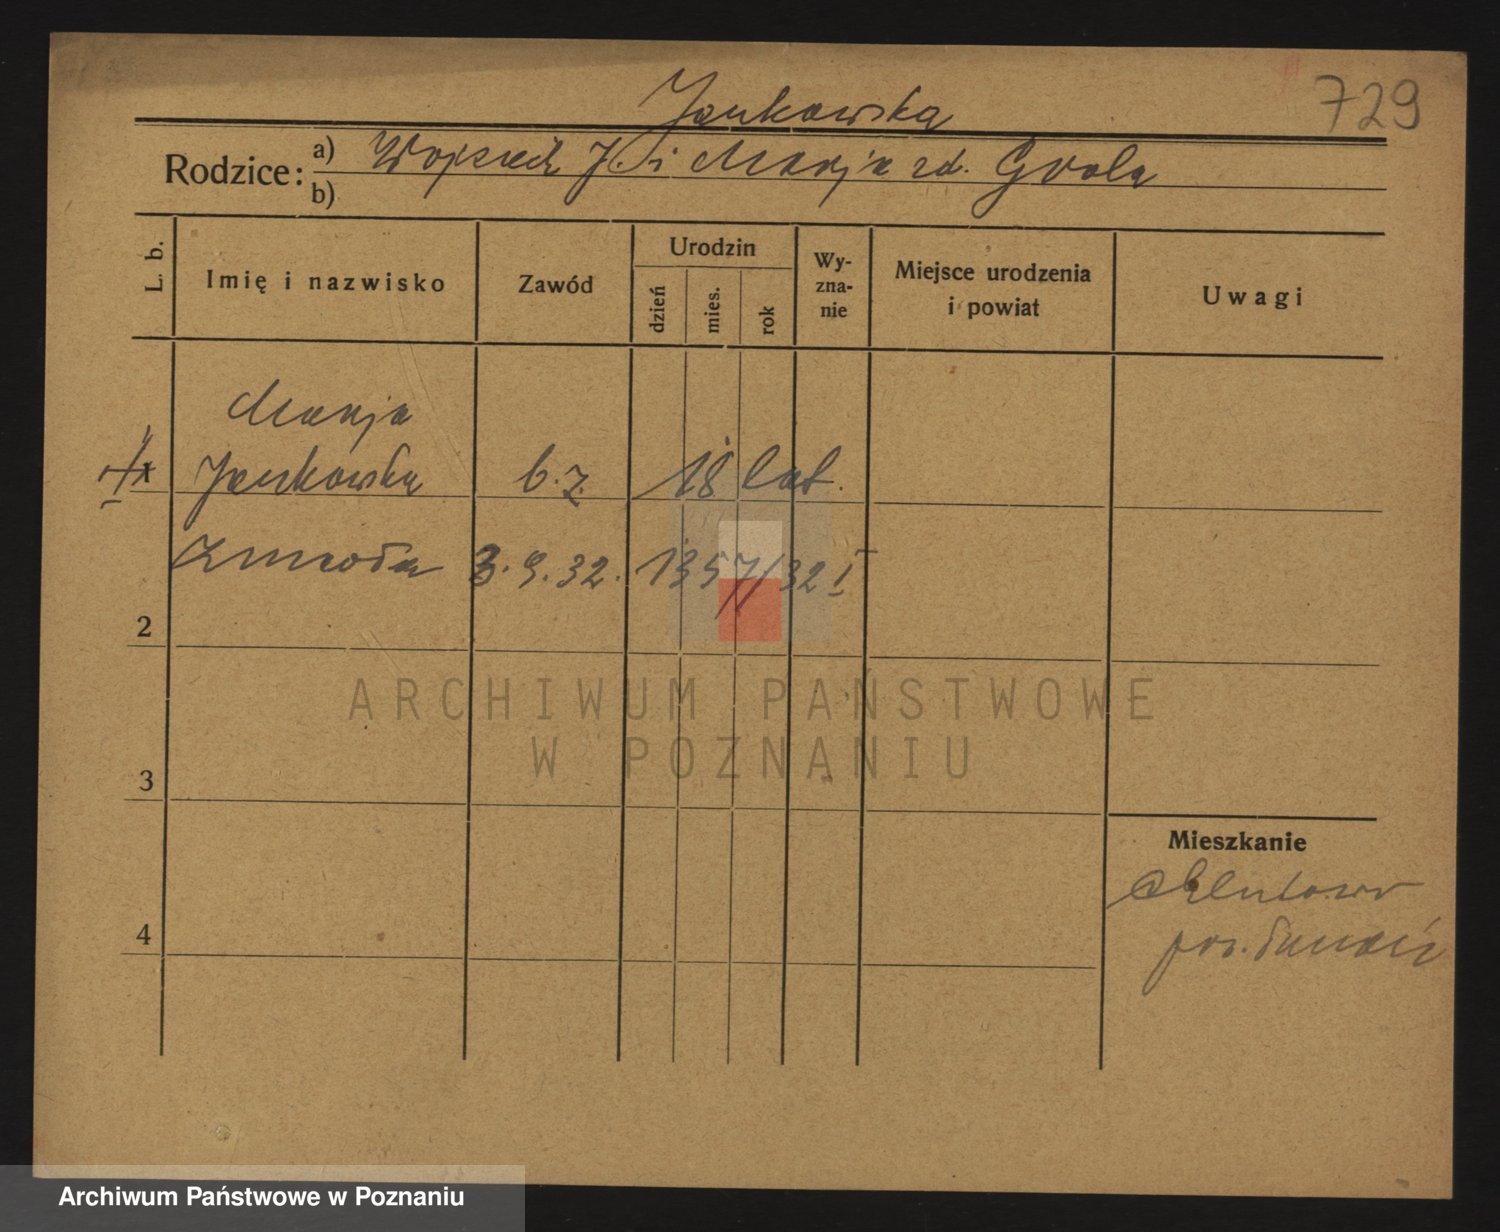 Jankowska
729
Rodzice: a) Wojciech J. i Marja zd. Grola
b)
L. b.
Imię i nazwisko
Zawód
Urodzin
dzień
mies.
rok
Wy-
zna-
nie
Miejsce urodzenia
i powiat
Uwagi
Marja
1 Jankowska b. z. 18 lat.
zmarła 3.9.32. 1357/32 I
2
3
4
Mieszkanie
pow.
ARCHIWUM PAŃSTWOWE
W POZNANIU
Archiwum Państwowe w Poznaniu